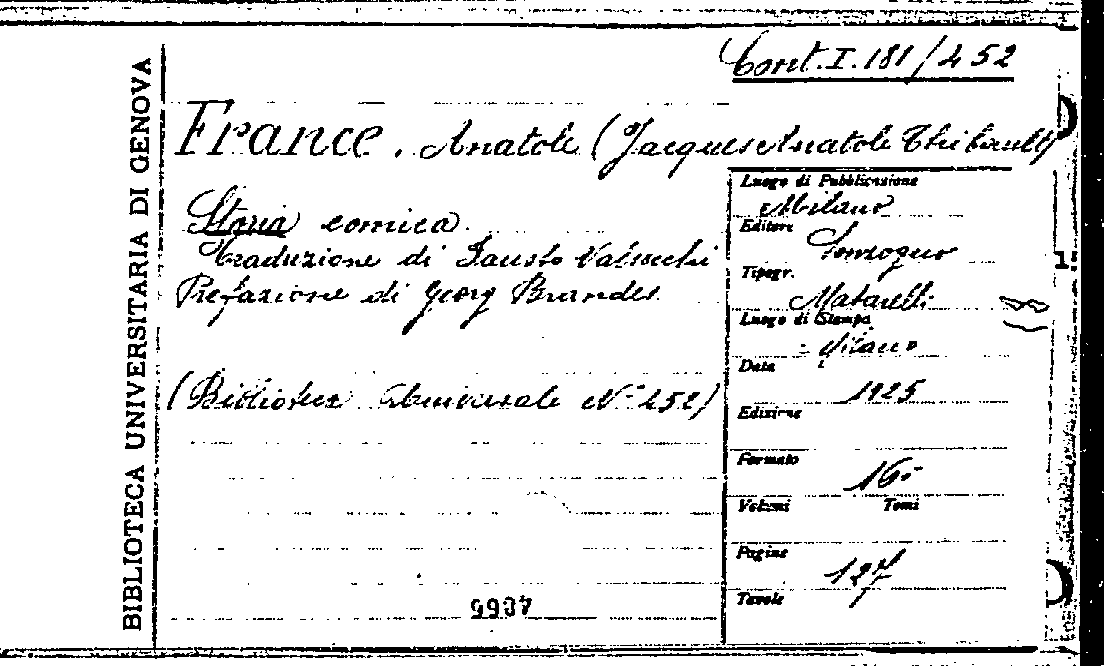 BIBLIOTECA UNIVERSITARIA DI GENOVA
Cont. I. 181/252
France, Anatole (Jacques Anatole Thibault)
Storia comica.
Traduzione di Fausto Valsecchi
Prefazione di Georg Brandes
(Biblioteca Universale N° 252)
Luogo di Pubblicazione
Milano
Editore
Sonzogno
Tipogr.
Matarelli
Luogo di Stampa
Milano
Data
1925
Edizione
Formato
16°
Volumi Tomi
Pagine
127
Tavole